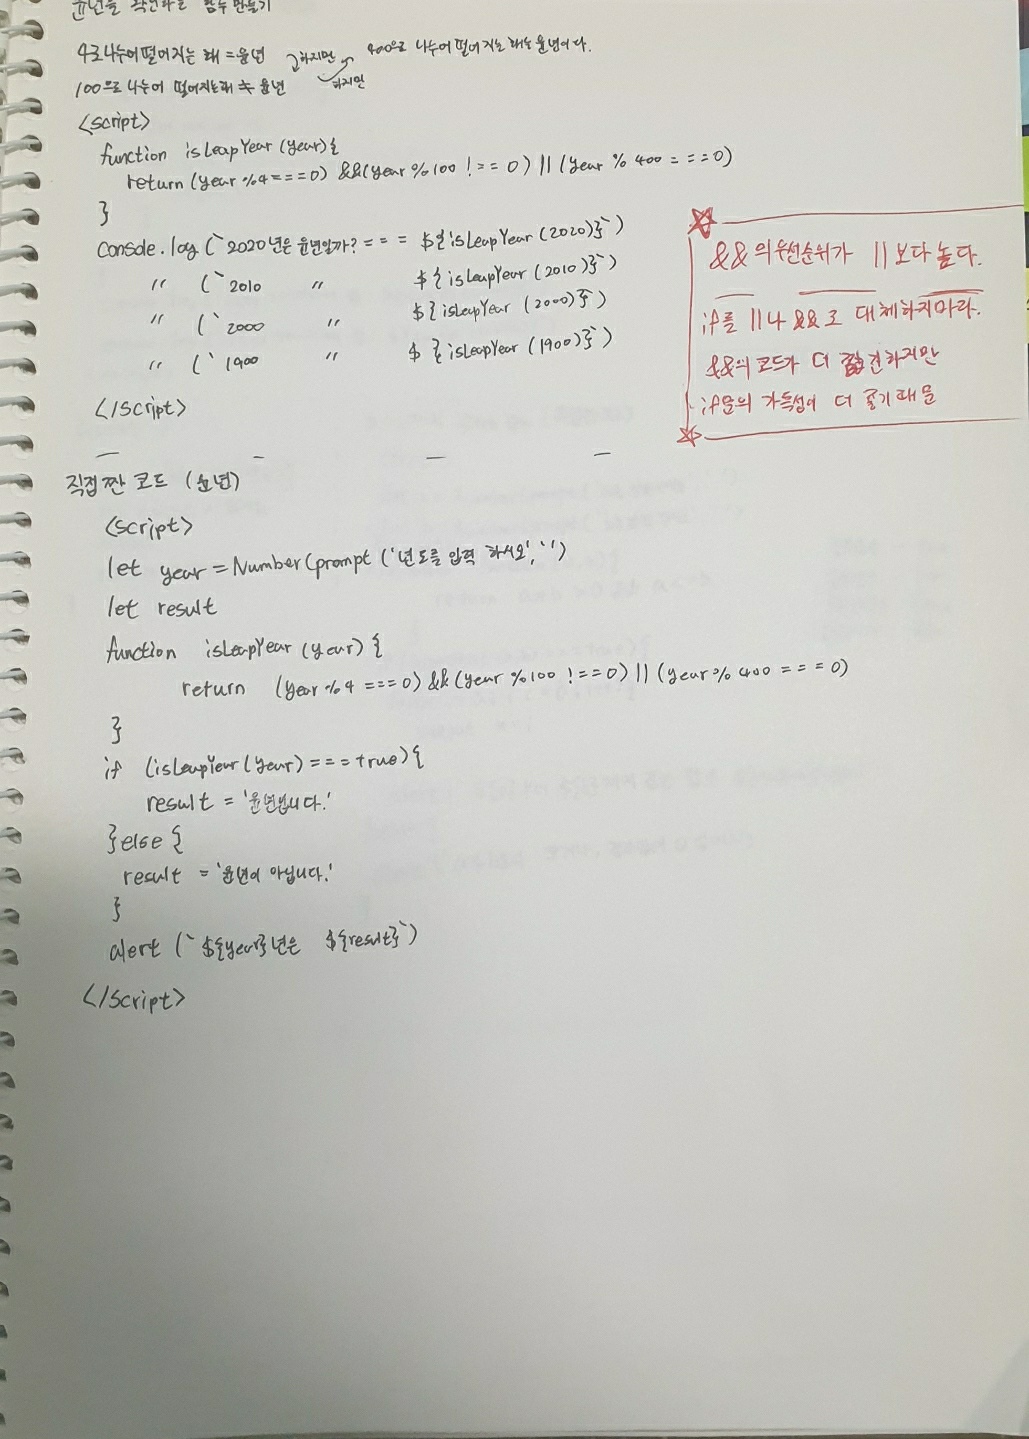 윤년을 확인하는 함수 만들기
4로 나누어 떨어지는 해 = 윤년 하지만 400으로 나누어 떨어지는 해는 윤년이다.
100으로 나누어 떨어지는 해 ≠ 윤년 하지만
<script>
function isLeapYear (year) {
return (year % 4 === 0) && (year % 100 !== 0) || (year % 400 === 0)
}
console.log (`2020년은 윤년일까? === ${isLeapYear (2020)}`)
〃 (`2010 〃 ${isLeapYear (2010)}`)
〃 (`2000 〃 ${isLeapYear (2000)}`)
〃 (`1900 〃 ${isLeapYear (1900)}`)
</script>
&&의 우선순위가 ||보다 높다.
if를 ||나 &&로 대체하지마라.
&&의 코드가 더 하지만
if문의 가독성이 더 좋기 때문
직접 짠 코드 (윤년)
<script>
let year = Number(prompt ('년도를 입력 하시오', '')
let result
function isLeapYear (year) {
return (year % 4 === 0) && (year % 100 !== 0) || (year % 400 === 0)
}
if (isLeapYear (year) === true) {
result = '윤년입니다.'
} else {
result = '윤년이 아닙니다.'
}
alert (`${year}년은 ${result}`)
</script>